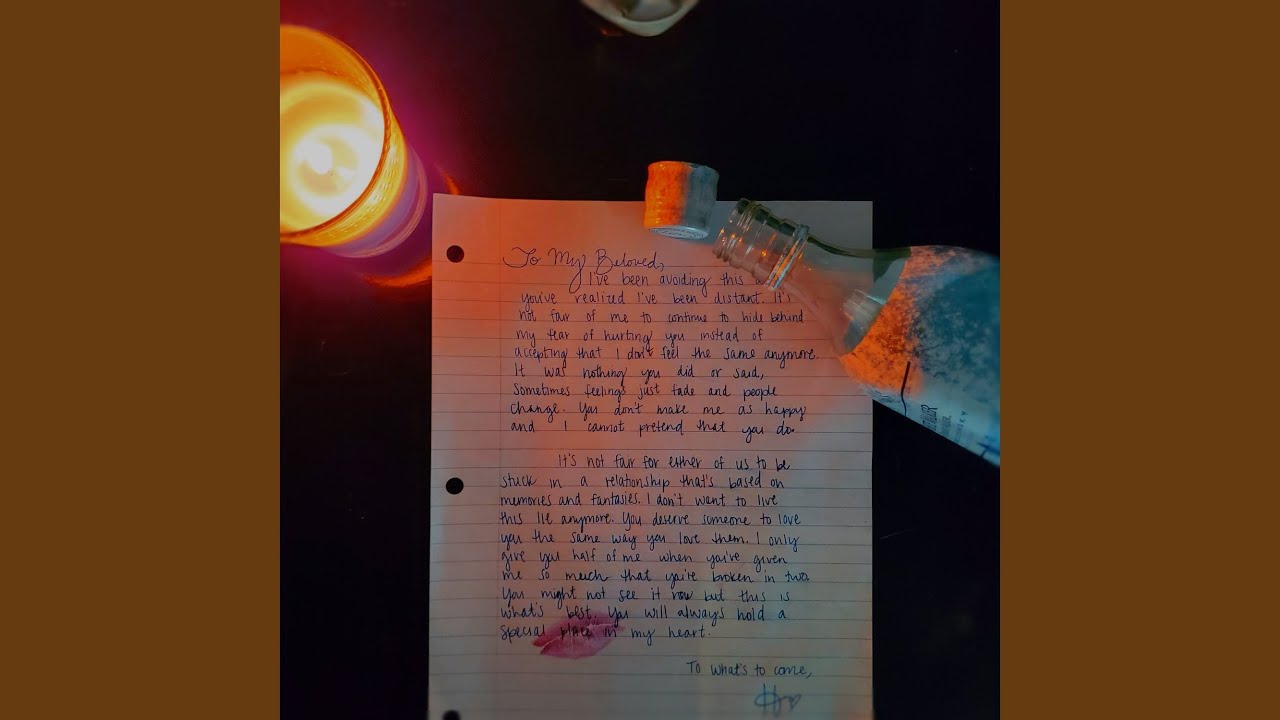 To My Beloved,
I've been avoiding this
you've realized I've been distant. It's
not fair of me to continue to hide behind
my fear of hurting you instead of
accepting that I don't feel the same anymore.
It was nothing you did or said,
sometimes feelings just fade and people
change. You don't make me as happy
and I cannot pretend that you do.
It's not fair for either of us to be
stuck in a relationship that's based on
memories and fantasies. I don't want to live
this lie anymore. You deserve someone to love
you the same way you love them. I only
give you half of me when you've given
me so much that you're broken in two.
You might not see it now but this is
what's best. You will always hold a
special place in my heart.
To what's to come,
H